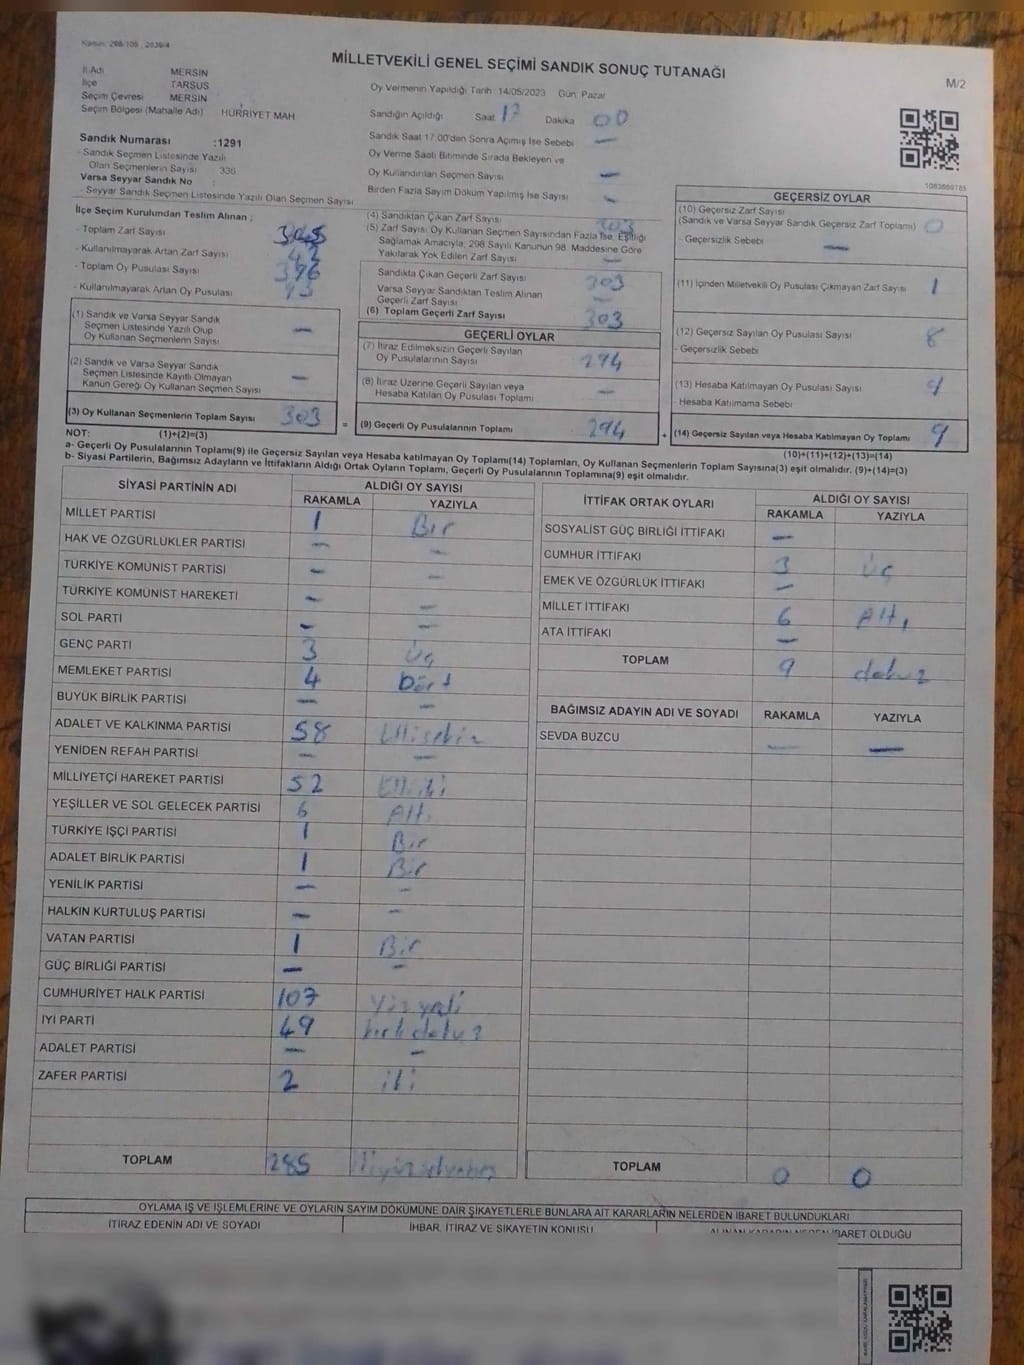 Kanun: 298/105 , 2839/4
MİLLETVEKİLİ GENEL SEÇİMİ SANDIK SONUÇ TUTANAĞI
M/2
İl Adı MERSİN
İlçe TARSUS
Seçim Çevresi MERSİN
Seçim Bölgesi (Mahalle Adı) HÜRRİYET MAH
Sandık Numarası :1291
- Sandık Seçmen Listesinde Yazılı
Olan Seçmenlerin Sayısı : 336
Varsa Seyyar Sandık No :
- Seyyar Sandık Seçmen Listesinde Yazılı Olan Seçmen Sayısı
Oy Vermenin Yapıldığı Tarih 14/05/2023 Gün: Pazar
Sandığın Açıldığı Saat 17 Dakika 00
Sandık Saat 17:00'den Sonra Açılmış İse Sebebi —
Oy Verme Saati Bitiminde Sırada Bekleyen ve
Oy Kullandırılan Seçmen Sayısı —
Birden Fazla Sayım Döküm Yapılmış İse Sayısı —
1083689765
İlçe Seçim Kurulundan Teslim Alınan ;
- Toplam Zarf Sayısı 345
- Kullanılmayarak Artan Zarf Sayısı 42
- Toplam Oy Pusulası Sayısı 396
- Kullanılmayarak Artan Oy Pusulası 93
(1) Sandık ve Varsa Seyyar Sandık
Seçmen Listesinde Yazılı Olup
Oy Kullanan Seçmenlerin Sayısı —
(2) Sandık ve Varsa Seyyar Sandık
Seçmen Listesinde Kayıtlı Olmayan
Kanun Gereği Oy Kullanan Seçmen Sayısı —
(3) Oy Kullanan Seçmenlerin Toplam Sayısı 303
(4) Sandıktan Çıkan Zarf Sayısı 303
(5) Zarf Sayısı Oy Kullanan Seçmen Sayısından Fazla İse, Eşitliği
Sağlamak Amacıyla, 298 Sayılı Kanunun 98. Maddesine Göre
Yakılarak Yok Edilen Zarf Sayısı —
Sandıkta Çıkan Geçerli Zarf Sayısı 303
Varsa Seyyar Sandıktan Teslim Alınan
Geçerli Zarf Sayısı —
(6) Toplam Geçerli Zarf Sayısı 303
GEÇERLİ OYLAR
(7) İtiraz Edilmeksizin Geçerli Sayılan
Oy Pusulalarının Sayısı 294
(8) İtiraz Üzerine Geçerli Sayılan veya
Hesaba Katılan Oy Pusulası Toplamı —
= (9) Geçerli Oy Pusulalarının Toplamı 294
GEÇERSİZ OYLAR
(10) Geçersiz Zarf Sayısı
(Sandık ve Varsa Seyyar Sandık Geçersiz Zarf Toplamı) 0
- Geçersizlik Sebebi —
(11) İçinden Milletvekili Oy Pusulası Çıkmayan Zarf Sayısı 1
(12) Geçersiz Sayılan Oy Pusulası Sayısı 8
- Geçersizlik Sebebi
(13) Hesaba Katılmayan Oy Pusulası Sayısı 9
- Hesaba Katılmama Sebebi
+ (14) Geçersiz Sayılan veya Hesaba Katılmayan Oy Toplamı 9
NOT: (1)+(2)=(3) (10)+(11)+(12)+(13)=(14)
a- Geçerli Oy Pusulalarının Toplamı(9) ile Geçersiz Sayılan veya Hesaba Katılmayan Oy Toplamı(14) Toplamları, Oy Kullanan Seçmenlerin Toplam Sayısına(3) eşit olmalıdır. (9)+(14)=(3)
b- Siyasi Partilerin, Bağımsız Adayların ve İttifakların Aldığı Ortak Oyların Toplamı, Geçerli Oy Pusulalarının Toplamına(9) eşit olmalıdır.
SİYASİ PARTİNİN ADI ALDIĞI OY SAYISI
RAKAMLA YAZIYLA
MİLLET PARTİSİ 1 Bir
HAK VE ÖZGÜRLÜKLER PARTİSİ — —
TÜRKİYE KOMÜNİST PARTİSİ — —
TÜRKİYE KOMÜNİST HAREKETİ — —
SOL PARTİ — —
GENÇ PARTİ 3 Üç
MEMLEKET PARTİSİ 4 Dört
BÜYÜK BİRLİK PARTİSİ — —
ADALET VE KALKINMA PARTİSİ 58 Ellisekiz
YENİDEN REFAH PARTİSİ — —
MİLLİYETÇİ HAREKET PARTİSİ 52 Elliiki
YEŞİLLER VE SOL GELECEK PARTİSİ 6 Altı
TÜRKİYE İŞÇİ PARTİSİ 1 Bir
ADALET BİRLİK PARTİSİ 1 Bir
YENİLİK PARTİSİ — —
HALKIN KURTULUŞ PARTİSİ — —
VATAN PARTİSİ 1 Bir
GÜÇ BİRLİĞİ PARTİSİ — —
CUMHURİYET HALK PARTİSİ 107 Yüzyedi
İYİ PARTİ 49 kırkdokuz
ADALET PARTİSİ — —
ZAFER PARTİSİ 2 iki
TOPLAM 285 ikiyüzseksenbeş
İTTİFAK ORTAK OYLARI ALDIĞI OY SAYISI
RAKAMLA YAZIYLA
SOSYALİST GÜÇ BİRLİĞİ İTTİFAKI —
CUMHUR İTTİFAKI 3 Üç
EMEK VE ÖZGÜRLÜK İTTİFAKI —
MİLLET İTTİFAKI 6 Altı
ATA İTTİFAKI —
TOPLAM 9 dokuz
BAĞIMSIZ ADAYIN ADI VE SOYADI RAKAMLA YAZIYLA
SEVDA BUZCU — —
TOPLAM 0 0
OYLAMA İŞ VE İŞLEMLERİNE VE OYLARIN SAYIM DÖKÜMÜNE DAİR ŞİKAYETLERLE BUNLARA AİT KARARLARIN NELERDEN İBARET BULUNDUKLARI
İTİRAZ EDENİN ADI VE SOYADI İHBAR, İTİRAZ VE ŞİKAYETİN KONUSU ALINAN KARARIN NEDEN İBARET OLDUĞU